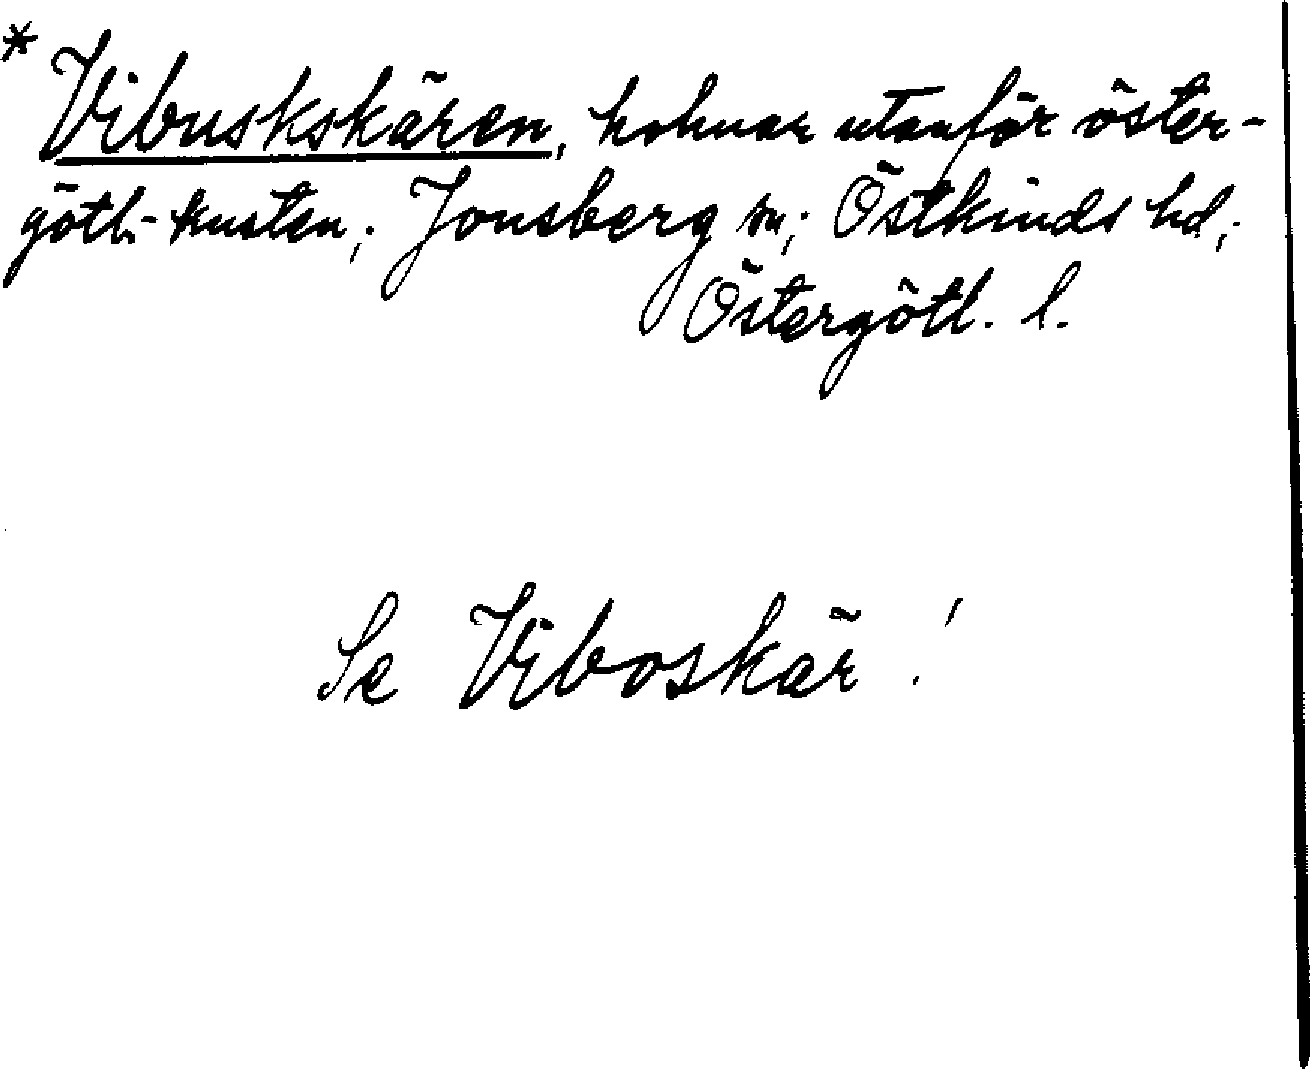 * Vibuskskären, holmar utanför öster-
götl.-kusten; Jonsberg sn; Östkinds hd,
Östergötl. l.
Se Viboskär!